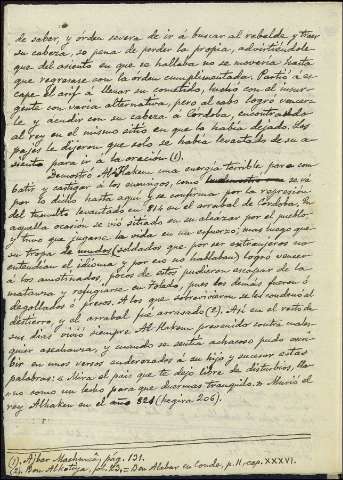 de saber, y órden severa de ir á buscar al rebelde y traer
su cabeza, so pena de perder la propia, advirtiéndole
que del asiento en que se hallaba no se moveria hasta
que regresase con la órden cumplimentada. Partió á es-
cape el arif á llevar su cometido, luchó con el insur-
gente con varia alternativa, pero al cabo logró vencer-
le y acudir con su cabeza á Córdoba, encontrando
al rey en el mismo sitio en que lo habia dejado. Los
pajes le dijeron que solo se habia levantado de su a-
siento para ir á la oracion (1).
Demostró Al-Hakem una energia terrible para com-
batir y castigar á los enemigos, como se vé
por lo dicho hasta aquí y se confirma por la represion
del tumulto levantado en 814 en el arrabal de Córdoba. En
aquella ocasion se vió sitiado en su alcázar por el pueblo
y tuvo que jugarse la vida en un esfuerzo; mas luego que
su tropa de mudos (soldados que por ser extranjeros no
entendian el idioma y por eso no hablaban) logró vencer
á los amotinados, pocos de estos pudieron escapar de la
matanza y refugiarse en Toledo, pues los demás fueron ó
degollados ó presos. A los que sobrevivieron se les condenó al
destierro, y el arrabal fué arrasado (2). Así en el resto de
sus dias vivió siempre Al-Hakem prevenido contra cual-
quier asechanza, y cuando se sentia achacoso pudo escri-
bir en unos versos enderezados á su hijo y sucesor estas
palabras: « Mira el pais que te dejo libre de disturbios, lla-
no como un lecho para que duermas tranquilo.» Murió el
rey Alhaken en el año 821 (hegira 206).
(1). Ajbar Machmuâ, pág. 131.
(2). Ben Alkotiya, fol. 23, = Ben Alabar en Conde, p. II, cap. XXXVI.